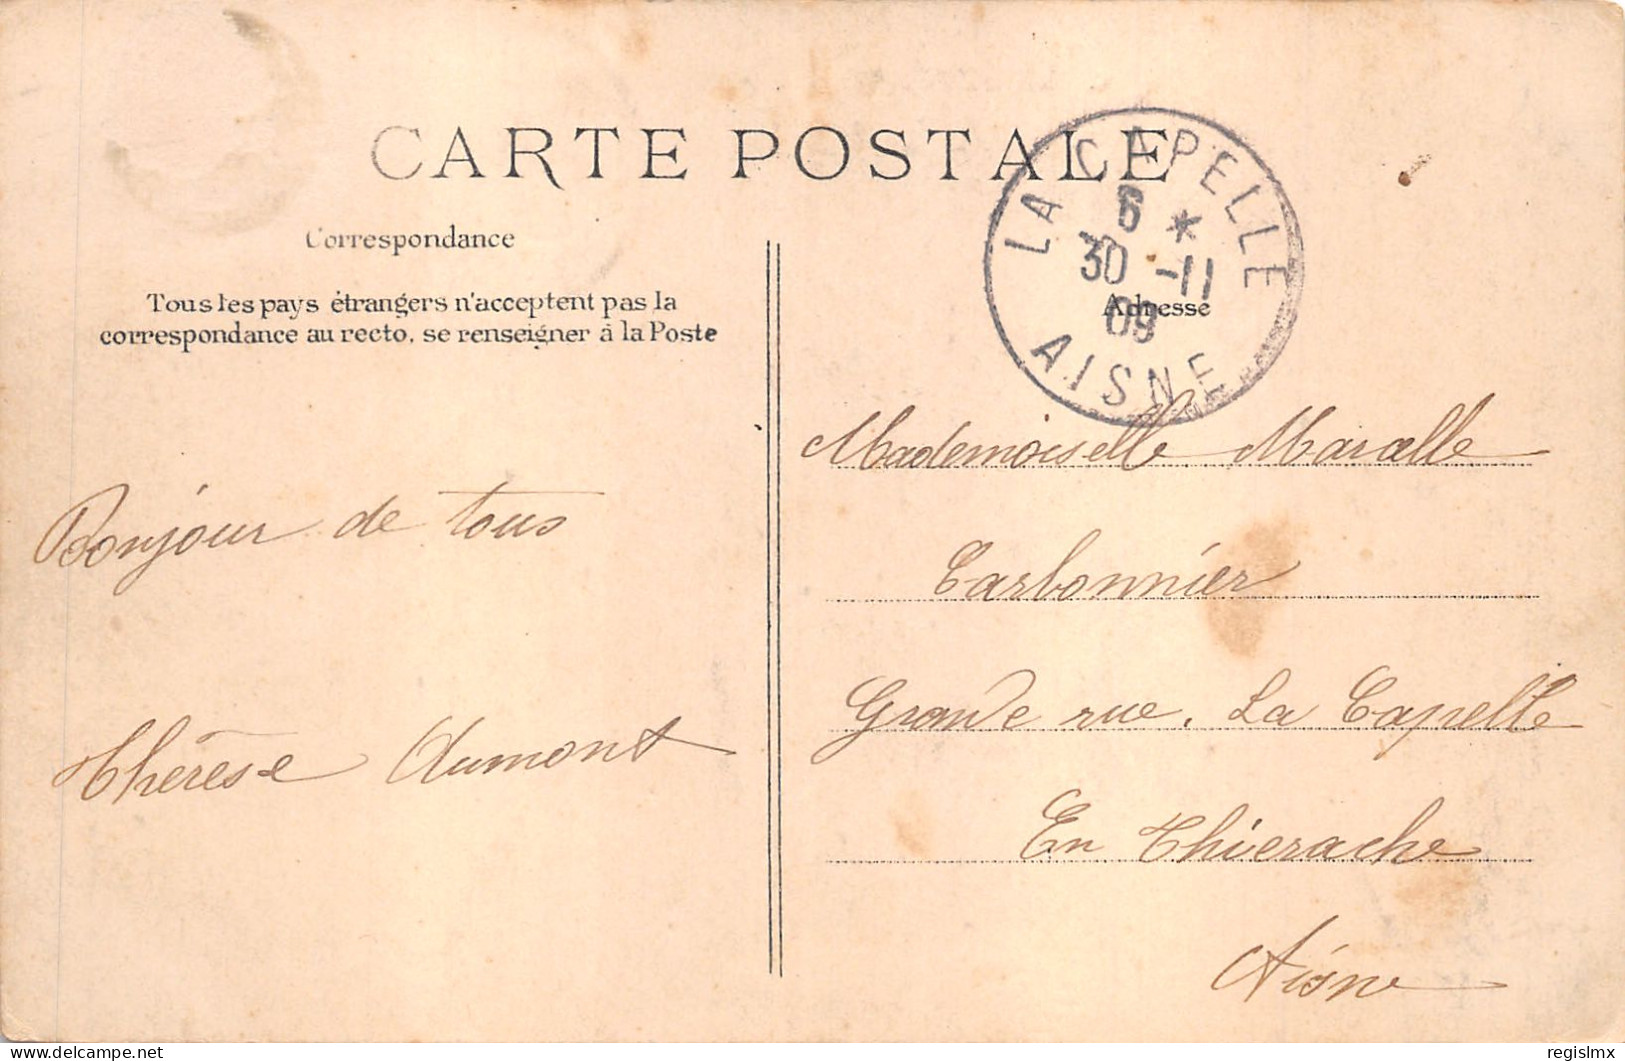 CARTE POSTALE
Correspondance
Tous les pays étrangers n'acceptent pas la
correspondance au recto, se renseigner à la Poste
Bonjour de tous
Thérèse Dumont
LA CAPELLE
6 *
30 -11
09
AISNE
Adresse
Mademoiselle Marcelle
Carbonnier
Grande rue. La Capelle
En Thierache
Aisne
delcampe.net
regislmx